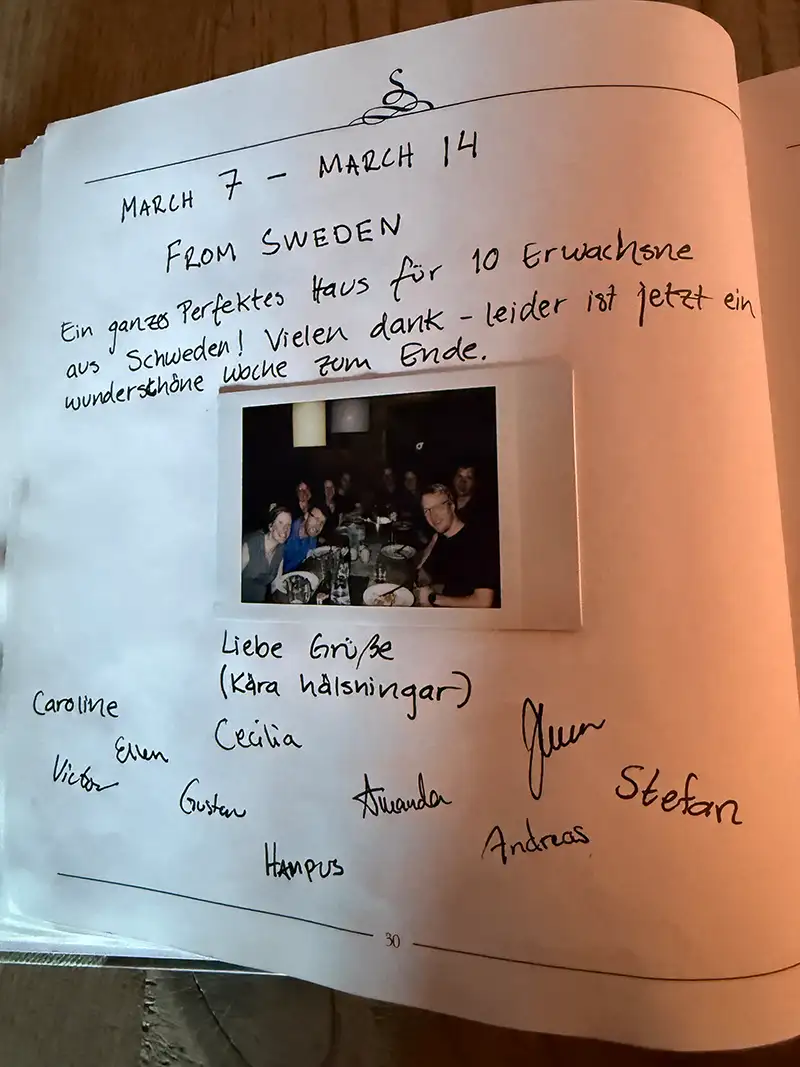 MARCH 7 - MARCH 14
FROM SWEDEN
Ein ganzes Perfektes Haus für 10 Erwachsne
aus Schweden! Vielen dank - leider ist jetzt ein
wunderschöne woche zum Ende.
Liebe Grüße
(Kära hälsningar)
Caroline
Ellen
Cecilia
Victor
Gustav
Amanda
Stefan
Andreas
HAMPUS
30